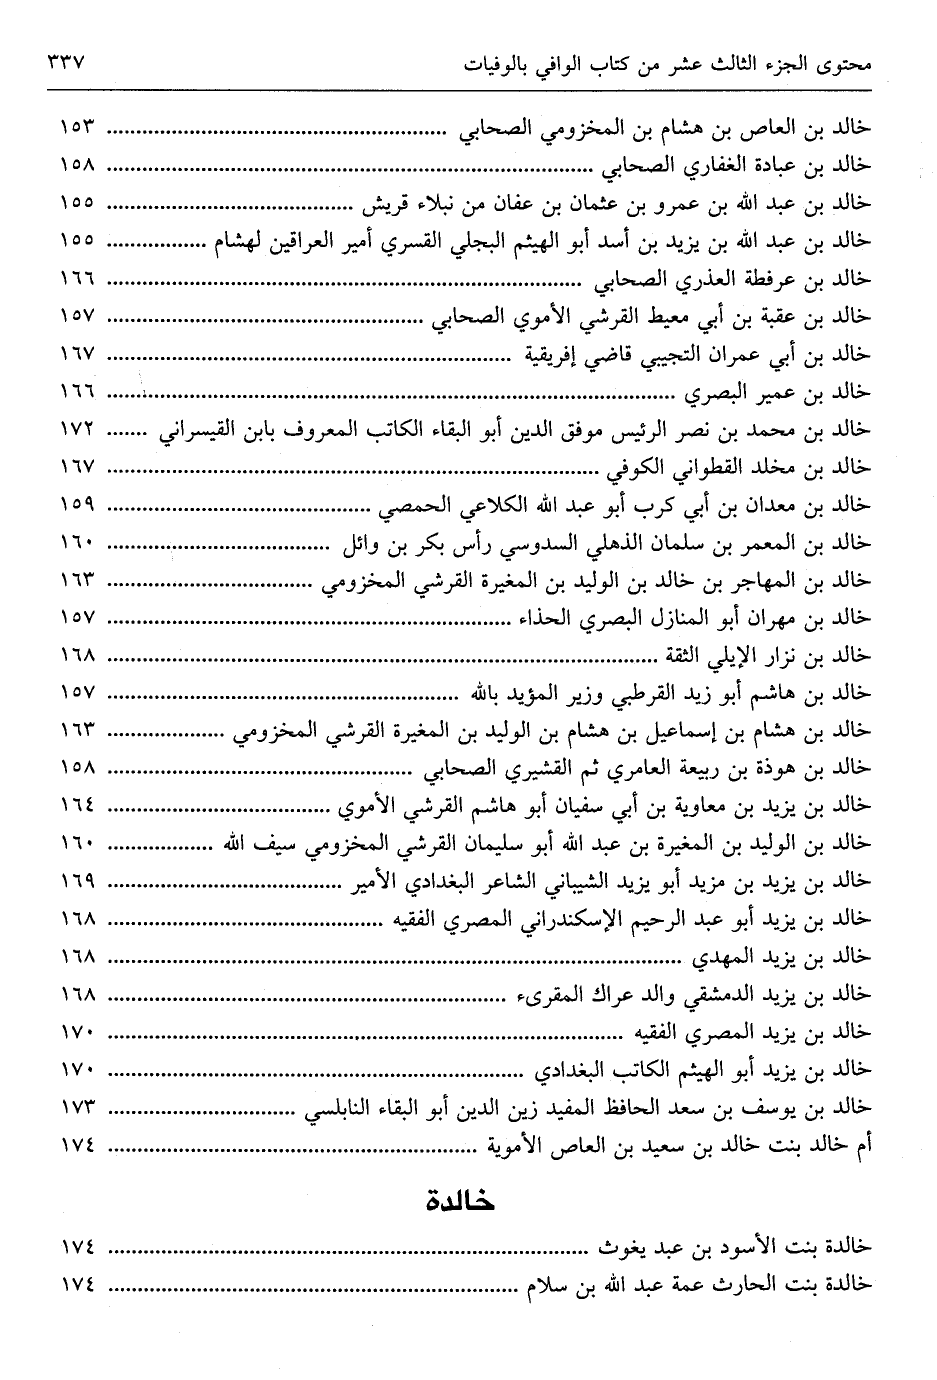 محتوى الجزء الثالث عشر من كتاب الوافي بالوفيات ٣٣٧
خالد بن العاص بن هشام بن المخزومي الصحابي ........ ١٥٣
خالد بن عبادة الغفاري الصحابي ........ ١٥٨
خالد بن عبد الله بن عمرو بن عثمان بن عفان من نبلاء قريش ........ ١٥٥
خالد بن عبد الله بن يزيد بن أسد أبو الهيثم البجلي القسري أمير العراقين لهشام ........ ١٥٥
خالد بن عرفطة العذري الصحابي ........ ١٦٦
خالد بن عقبة بن أبي معيط القرشي الأموي الصحابي ........ ١٥٧
خالد بن أبي عمران التجيبي قاضي إفريقية ........ ١٦٧
خالد بن عمير البصري ........ ١٦٦
خالد بن محمد بن نصر الرئيس موفق الدين أبو البقاء الكاتب المعروف بابن القيسراني ....... ١٧٢
خالد بن مخلد القطواني الكوفي ........ ١٦٧
خالد بن معدان بن أبي كرب أبو عبد الله الكلاعي الحمصي ........ ١٥٩
خالد بن المعمر بن سلمان الذهلي السدوسي رأس بكر بن وائل ........ ١٦٠
خالد بن المهاجر بن خالد بن الوليد بن المغيرة القرشي المخزومي ........ ١٦٣
خالد بن مهران أبو المنازل البصري الحذاء ........ ١٥٧
خالد بن نزار الإيلي الثقة ........ ١٦٨
خالد بن هاشم أبو زيد القرطبي وزير المؤيد بالله ........ ١٥٧
خالد بن هشام بن إسماعيل بن هشام بن الوليد بن المغيرة القرشي المخزومي ........ ١٦٣
خالد بن هوذة بن ربيعة العامري ثم القشيري الصحابي ........ ١٥٨
خالد بن يزيد بن معاوية بن أبي سفيان أبو هاشم القرشي الأموي ........ ١٦٤
خالد بن الوليد بن المغيرة بن عبد الله أبو سليمان القرشي المخزومي سيف الله ........ ١٦٠
خالد بن يزيد بن مزيد أبو يزيد الشيباني الشاعر البغدادي الأمير ........ ١٦٩
خالد بن يزيد أبو عبد الرحيم الإسكندراني المصري الفقيه ........ ١٦٨
خالد بن يزيد المهدي ........ ١٦٨
خالد بن يزيد الدمشقي والد عراك المقرىء ........ ١٦٨
خالد بن يزيد المصري الفقيه ........ ١٧٠
خالد بن يزيد أبو الهيثم الكاتب البغدادي ........ ١٧٠
خالد بن يوسف بن سعد الحافظ المفيد زين الدين أبو البقاء النابلسي ........ ١٧٣
أم خالد بنت خالد بن سعيد بن العاص الأموية ........ ١٧٤
خالدة
خالدة بنت الأسود بن عبد يغوث ........ ١٧٤
خالدة بنت الحارث عمة عبد الله بن سلام ........ ١٧٤